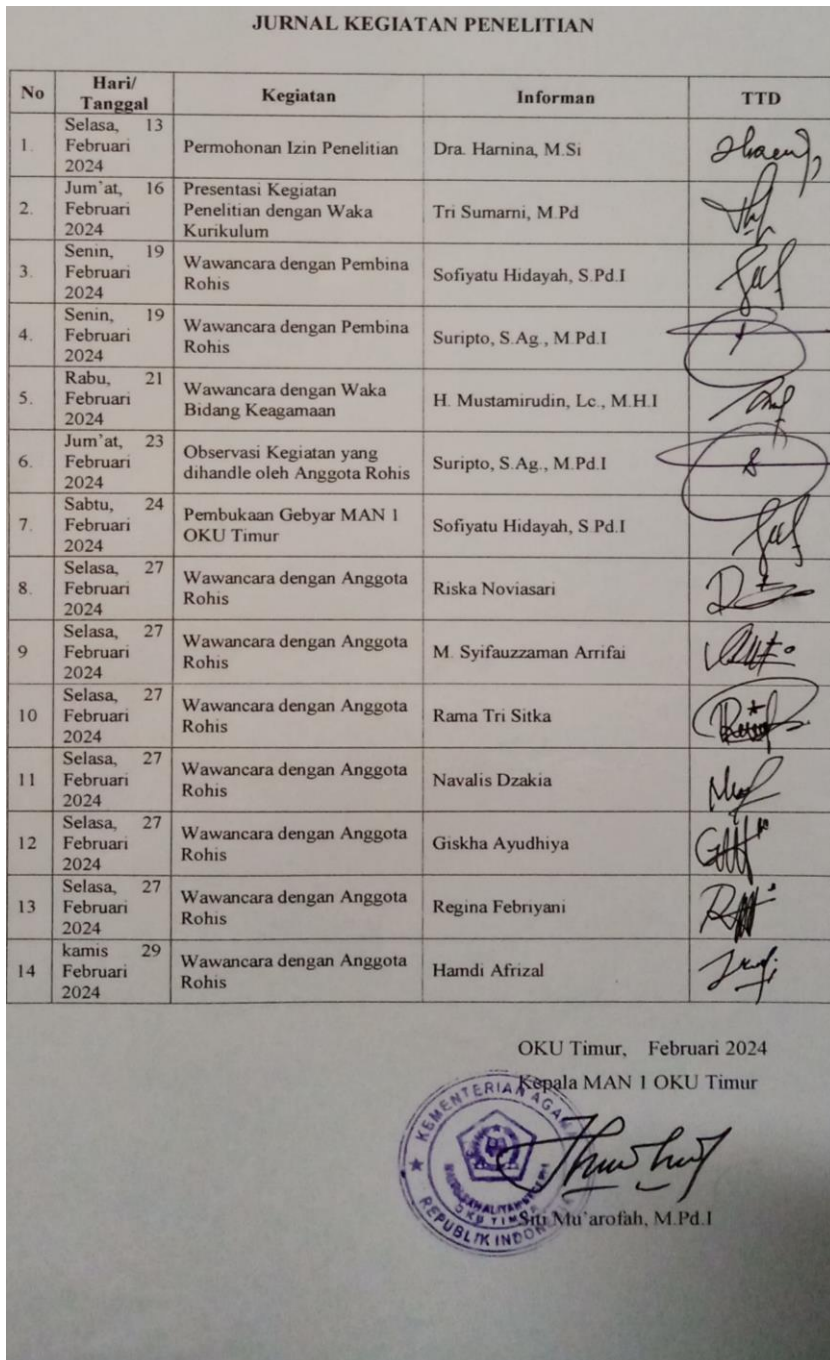 JURNAL KEGIATAN PENELITIAN
No
Hari/
Tanggal
Kegiatan
Informan
TTD
1.
Selasa, 13
Februari
2024
Permohonan Izin Penelitian
Dra. Harnina, M.Si
2.
Jum'at, 16
Februari
2024
Presentasi Kegiatan
Penelitian dengan Waka
Kurikulum
Tri Sumarni, M.Pd
3.
Senin, 19
Februari
2024
Wawancara dengan Pembina
Rohis
Sofiyatu Hidayah, S.Pd.I
4.
Senin, 19
Februari
2024
Wawancara dengan Pembina
Rohis
Suripto, S.Ag., M.Pd.I
5.
Rabu, 21
Februari
2024
Wawancara dengan Waka
Bidang Keagamaan
H. Mustamirudin, Lc., M.H.I
6.
Jum'at, 23
Februari
2024
Observasi Kegiatan yang
dihandle oleh Anggota Rohis
Suripto, S.Ag., M.Pd.I
7.
Sabtu, 24
Februari
2024
Pembukaan Gebyar MAN 1
OKU Timur
Sofiyatu Hidayah, S.Pd.I
8.
Selasa, 27
Februari
2024
Wawancara dengan Anggota
Rohis
Riska Noviasari
9
Selasa, 27
Februari
2024
Wawancara dengan Anggota
Rohis
M. Syifauzzaman Arrifai
10
Selasa, 27
Februari
2024
Wawancara dengan Anggota
Rohis
Rama Tri Sitka
11
Selasa, 27
Februari
2024
Wawancara dengan Anggota
Rohis
Navalis Dzakia
12
Selasa, 27
Februari
2024
Wawancara dengan Anggota
Rohis
Giskha Ayudhiya
13
Selasa, 27
Februari
2024
Wawancara dengan Anggota
Rohis
Regina Febriyani
14
kamis 29
Februari
2024
Wawancara dengan Anggota
Rohis
Hamdi Afrizal
OKU Timur, Februari 2024
Kepala MAN 1 OKU Timur
KEMENTERIAN AGAMA
REPUBLIK INDONESIA
OKU TIMUR
Siti Mu'arofah, M.Pd.I